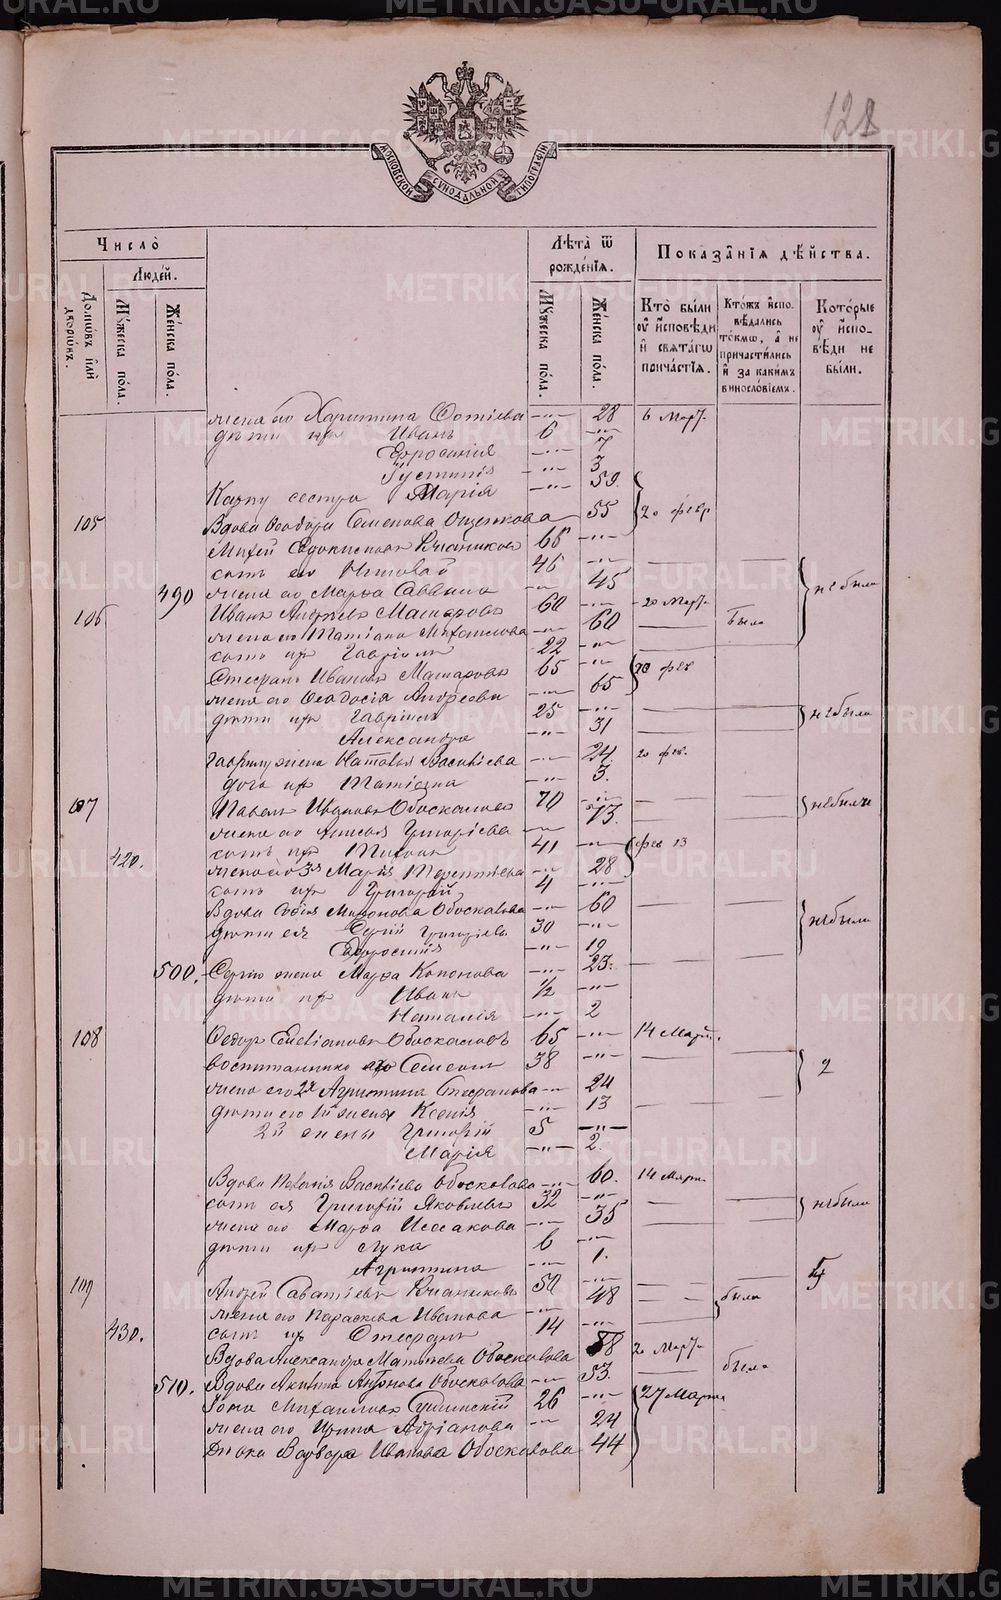 128
МОСКОВСКОЙ СѴНОДАЛЬНОЙ ТИПОГРАФІИ
Число
Людей.
Домовъ или дворовъ.
Мужеска пола.
Женска пола.
Лѣта ѿ рожденія.
Мужеска пола.
Женска пола.
Показанія дѣйства.
Кто были у исповѣди и святагѡ причастія.
Ктожъ исповѣдались токмѡ, а не причастились и за какимъ винословіемъ.
Которые у исповѣди не были.
жена его Харитина Фотіева 28 6 Март.
дѣти ихъ Иванъ 6
Ефросинія 7
Іустинія 3
сестра Марія 59
105 Вдова Ѳеодора Семенова 55 20 февр
66
сынъ его 46
490 жена его Марѳа Саввина 45 не были
106 Иванъ Андреевъ Машаровъ 60 20 Март.
жена его Татіана Михайлова 60 была
сынъ ихъ Гавріилъ 22
Стефанъ Ивановъ Машаровъ 65 20 фев
жена его Ѳеодосія Андреева 65
дѣти ихъ Гавріилъ 25 не были
Александра 31
Гаврилу жена Наталья Васильева 24 20 фев.
дочь ихъ Татіана 3
107 Павелъ Ивановъ Обоскаловъ 70 не были
жена его Григоріева 73
420. сынъ ихъ 41 фев 13
жена его 3я Марія Терентьева 28
сынъ ихъ Григорій 4
Вдова Софія Миронова Обоскалова 60
дѣти ея Сергій Григорьевъ 30 не были
Ефросинія 19
500. Сергію жена Марѳа Кононова 23
дѣти ихъ Иванъ 1/2
Наталія 2
108 Ѳедоръ Обоскаловъ 65 14 Март.
воспитанникъ его Семенъ 38 2
жена его 2я Агриппина Стефанова 24
дѣти его 1й жены Ксенія 13
2й жены Григорій 5
Марія 2
Вдова Васильева Обоскалова 60. 14 Март.
сынъ ея Григорій Яковлевъ 32 не были
жена его Марѳа Исаакова 35
дѣти ихъ Лука 6
Агриппина 1.
109 Андрей Саватіевъ 50
жена его Параскева Иванова 48 были
430. сынъ ихъ Стефанъ 14
Вдова Александра Матѳеева Обоскалова 88 20 Март.
510. Вдова Акилина Антонова Обоскалова 53. была
Ѳома Михайловъ 26 27 Марта
жена его Ирина Адріанова 24
Дѣвка Варвара Иванова Обоскалова 44
METRIKI.GASO-URAL.RU